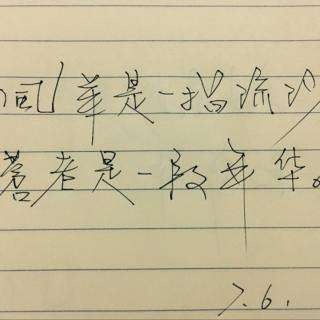 风华是一指流沙
苍老是一段年华。
7.6.